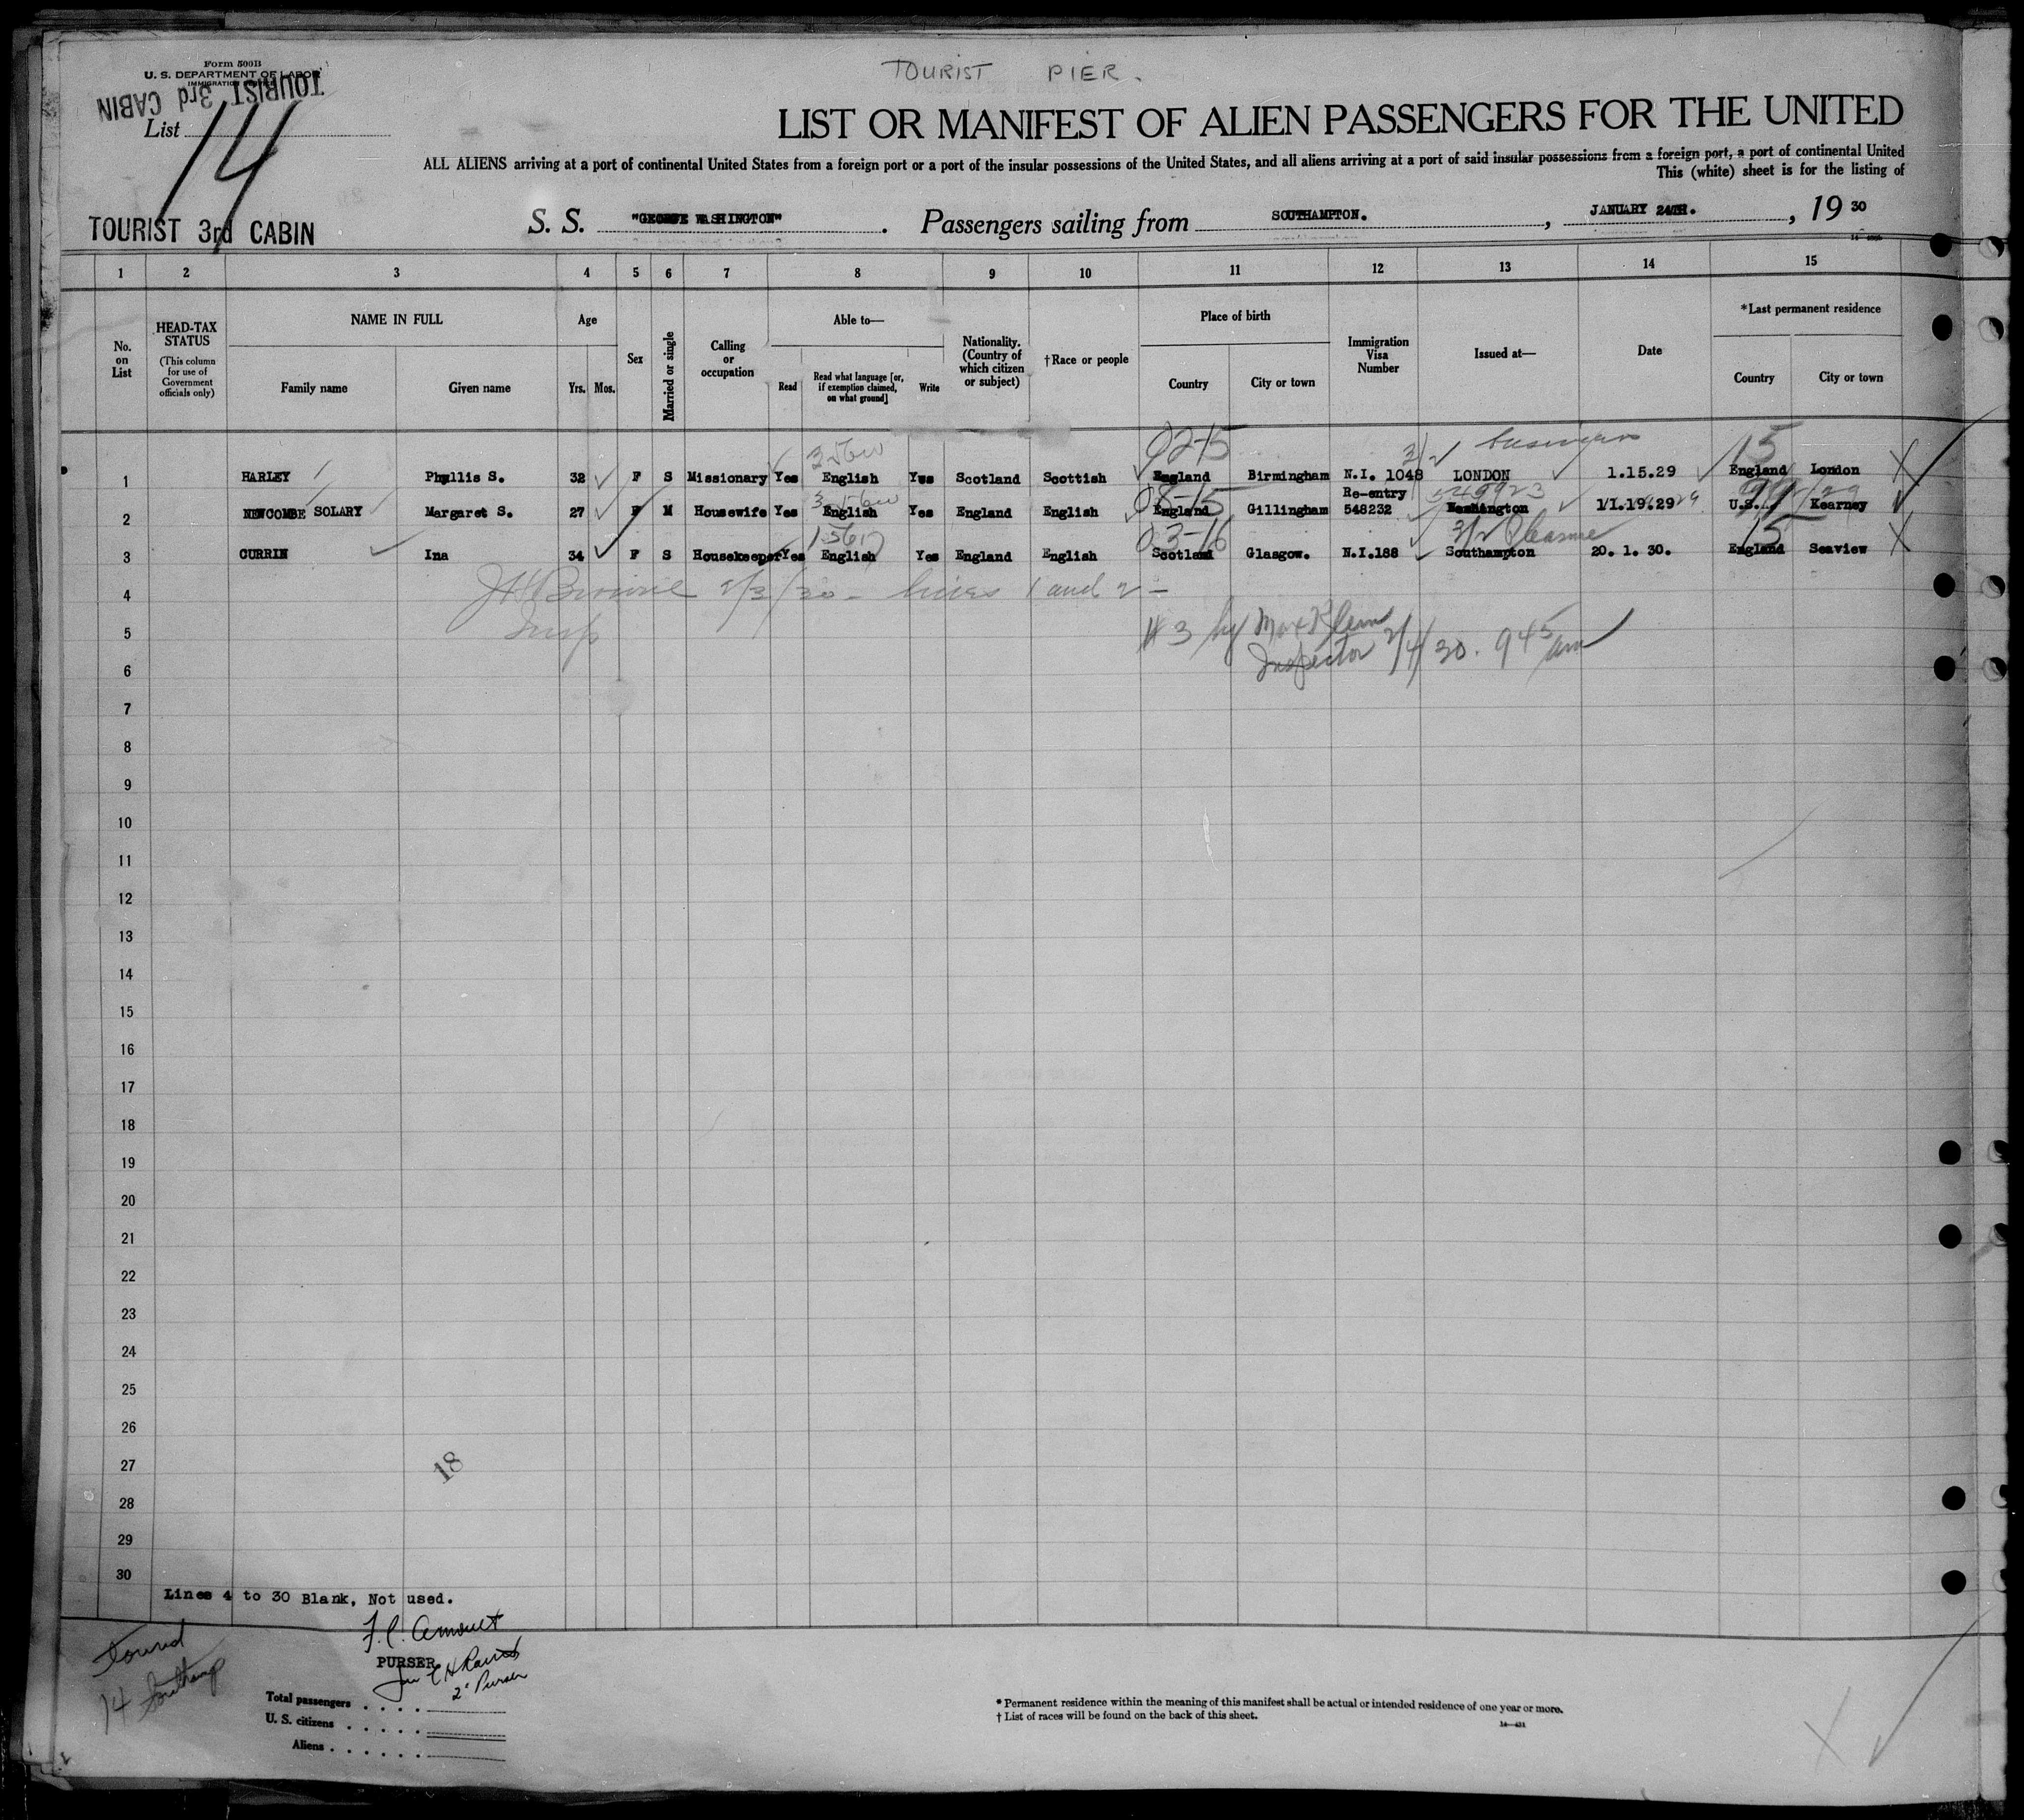 Form 500B
U. S. DEPARTMENT OF LABOR
IMMIGRATION
TOURIST 3rd CABIN
List 14
TOURIST PIER.
LIST OR MANIFEST OF ALIEN PASSENGERS FOR THE UNITED
ALL ALIENS arriving at a port of continental United States from a foreign port or a port of the insular possessions of the United States, and all aliens arriving at a port of said insular possessions from a foreign port, a port of continental United
This (white) sheet is for the listing of
TOURIST 3rd CABIN
S. S. "GEORGE WASHINGTON". Passengers sailing from SOUTHAMPTON., JANUARY 24TH., 19 30
1 2 3 4 5 6 7 8 9 10 11 12 13 14 15
No. on List
HEAD-TAX STATUS (This column for use of Government officials only)
NAME IN FULL Family name Given name
Age Yrs. Mos.
Sex
Married or single
Calling or occupation
Able to— Read Read what language [or, if exemption claimed, on what ground] Write
Nationality. (Country of which citizen or subject)
†Race or people
Place of birth Country City or town
Immigration Visa Number
Issued at—
Date
*Last permanent residence Country City or town
02-15 15
1 HARLEY Phyllis S. 32 F S Missionary Yes English Yes Scotland Scottish England Birmingham N.I. 1048 LONDON 1.15.29 England London X
08-15 Re-entry
2 NEWCOMBE SOLARY Margaret S. 27 F M Housewife Yes English Yes England English England Gillingham 548232 Washington 11.19.29 U.S. Kearney
03-16 Pleasure 15
3 CURRIN Ina 34 F S Housekeeper Yes English Yes England English Scotland Glasgow. N.I.188 Southampton 20. 1. 30. England Seaview X
4 2/3/30 - lines 1 and 2 -
Insp
5 #3 by Max Klein
Inspector 2/4/30. 9 45 am
6
7
8
9
10
11
12
13
14
15
16
17
18
19
20
21
22
23
24
25
26
27
18
28
29
30
Lines 4 to 30 Blank, Not used.
PURSER
2d Purser
14 Southamp
Total passengers . . . .
U. S. citizens . . . . .
Aliens . . . . . .
* Permanent residence within the meaning of this manifest shall be actual or intended residence of one year or more.
† List of races will be found on the back of this sheet.
14—431